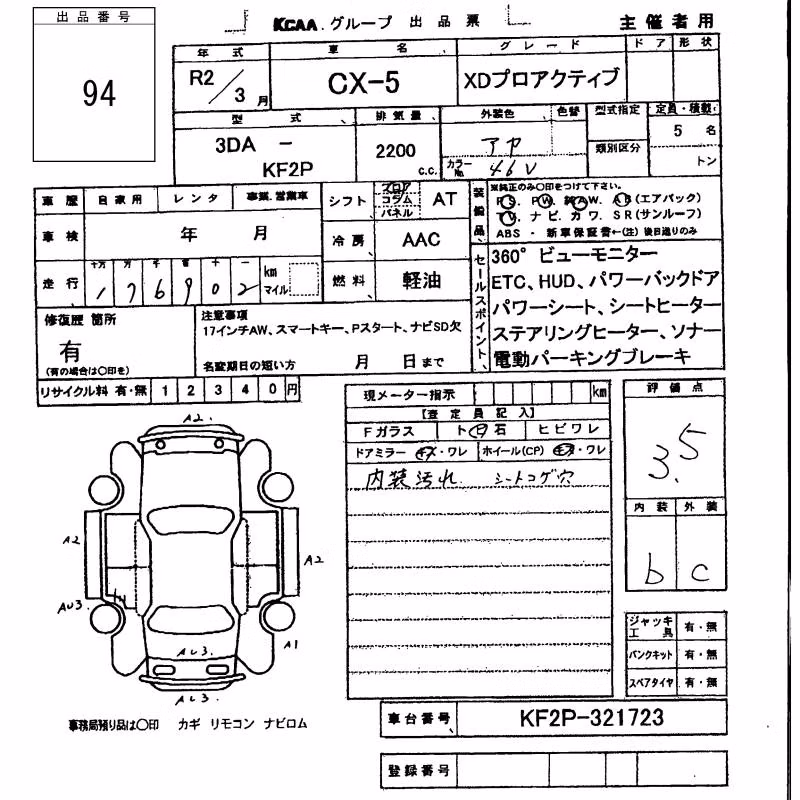 出品番号
94
KCAA グループ 出品票
主催者用
年式 車名 グレード ドア 形状
R2/3月 CX-5 XDプロアクティブ
型式 排気量 外装色 色替 型式指定 定員・積載
3DA - KF2P 2200 c.c. カラーNo. 46V 類別区分 5名 トン
車歴 自家用 レンタ 事業.営業車
シフト フロア コラム パネル AT
車検 年 月
冷房 AAC
走行 十万 万 千 百 十 一
176902 km マイル
燃料 軽油
装備品 ※純正のみ〇印をつけて下さい。
PS. PW. 純AW. AB(エアバック)
TV. ナビ. カワ. SR(サンルーフ)
ABS・新車保証書←(注)後日送りのみ
セールスポイント
360°ビューモニター
ETC、HUD、パワーバックドア
パワーシート、シートヒーター
ステアリングヒーター、ソナー
電動パーキングブレーキ
修復歴 箇所
有
(有の場合は〇印を)
注意事項
17インチAW、スマートキー、Pスタート、ナビSD欠
名変期日の短い方 月 日まで
リサイクル料 有・無 12340円
現メーター指示 km
【査定員記入】
Fガラス ト 石 ヒビワレ
ドアミラー キズ・ワレ ホイール(CP) キズ・ワレ
内装汚れ シートコゲ穴
評価点
3.5
内装 外装
b c
A2.
A2
A2
AU3.
A1
AU3.
AU3.
ジャッキ工具 有・無
パンクキット 有・無
スペアタイヤ 有・無
事務局預り品は〇印 カギ リモコン ナビロム
車台番号 KF2P-321723
登録番号